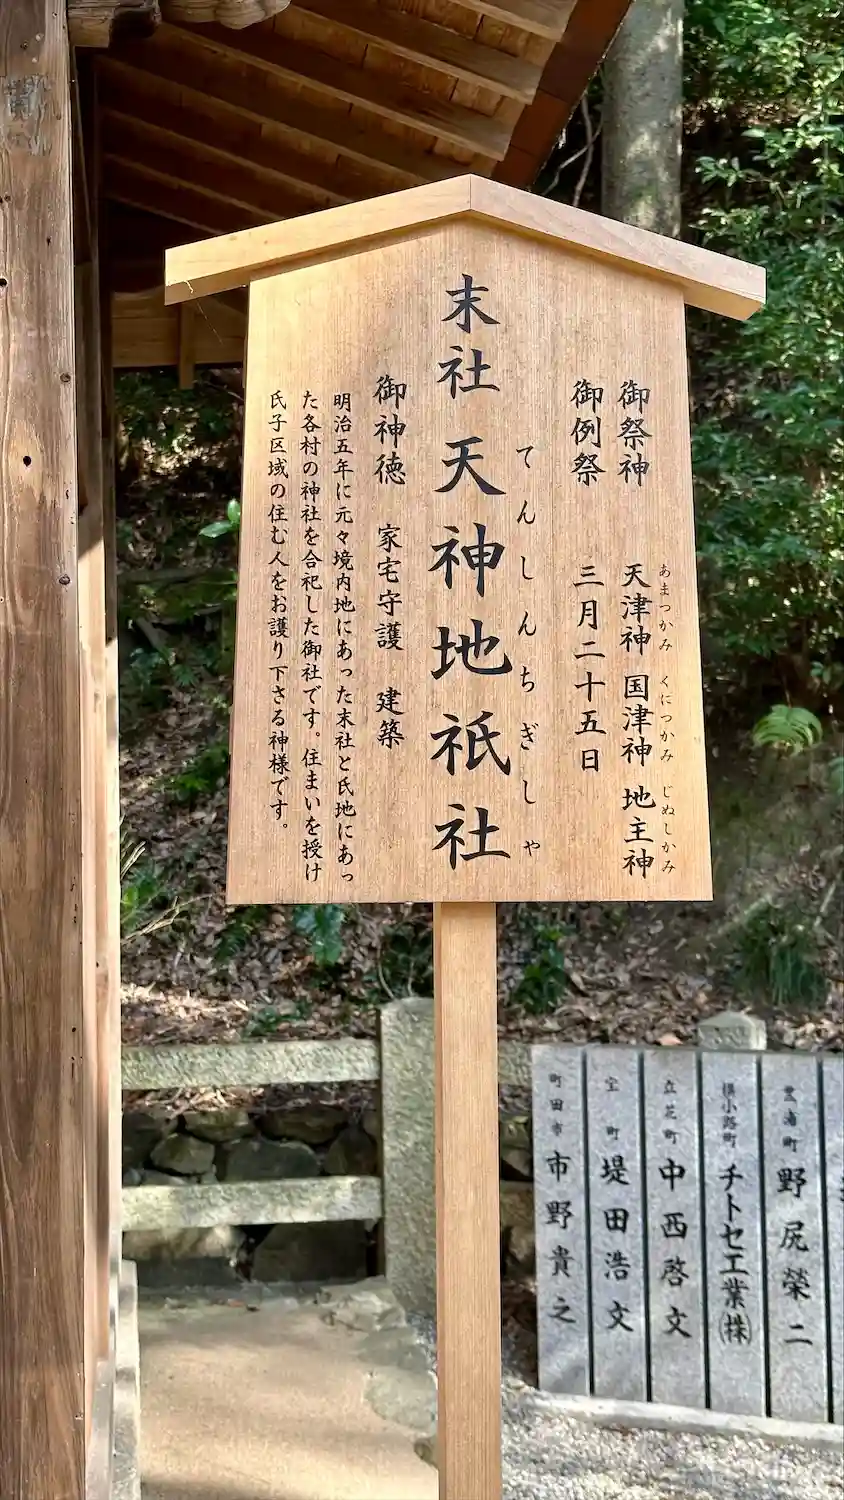 御祭神　天津神　国津神　地主神
あまつかみ　くにつかみ　じぬしかみ
御例祭　三月二十五日
末社　天神地祇社
てんしんちぎしゃ
御神徳　家宅守護　建築
明治五年に元々境内地にあった末社と氏地にあっ
た各村の神社を合祀した御社です。住まいを授け
氏子区域の住む人をお護り下さる神様です。
豊浦町　野尻榮二
横小路町　チトセ工業㈱
立花町　中西啓文
宝町　堤田浩文
町田市　市野貴之